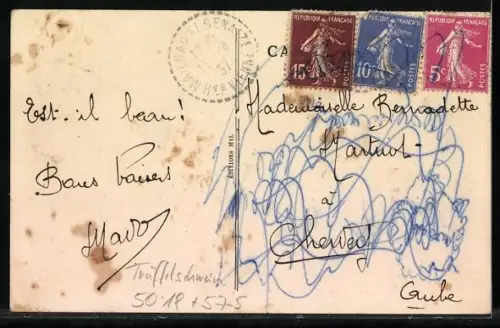 RÉPUBLIQUE FRANÇAISE
15c
POSTES
RÉPUBLIQUE FRANÇAISE
10c
POSTES
RÉPUBLIQUE FRANÇAISE
5c
POSTES
CA
Est-il beau!
Bons baisers
Mado
ÉDITIONS
Mademoiselle Bernadette
à
Chervey
Aube
Trüffelschwein
50.18 + 57-5